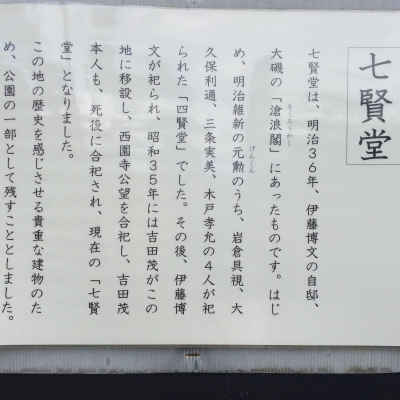 七賢堂
七賢堂は、明治36年、伊藤博文の自邸、
大磯の「滄浪閣」にあったものです。はじ
そうろうかく
め、明治維新の元勲のうち、岩倉具視、大
げんくん
久保利通、三条実美、木戸孝允の4人が祀
られた「四賢堂」でした。その後、伊藤博
文が祀られ、昭和35年には吉田茂がこの
地に移設し、西園寺公望を合祀し、吉田茂
本人も、死後に合祀され、現在の「七賢
堂」となりました。
この地の歴史を感じさせる貴重な建物のた
め、公園の一部として残すこととしました。